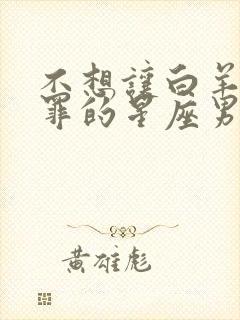 不想讓白羊
罪的星座男
黃雄彪